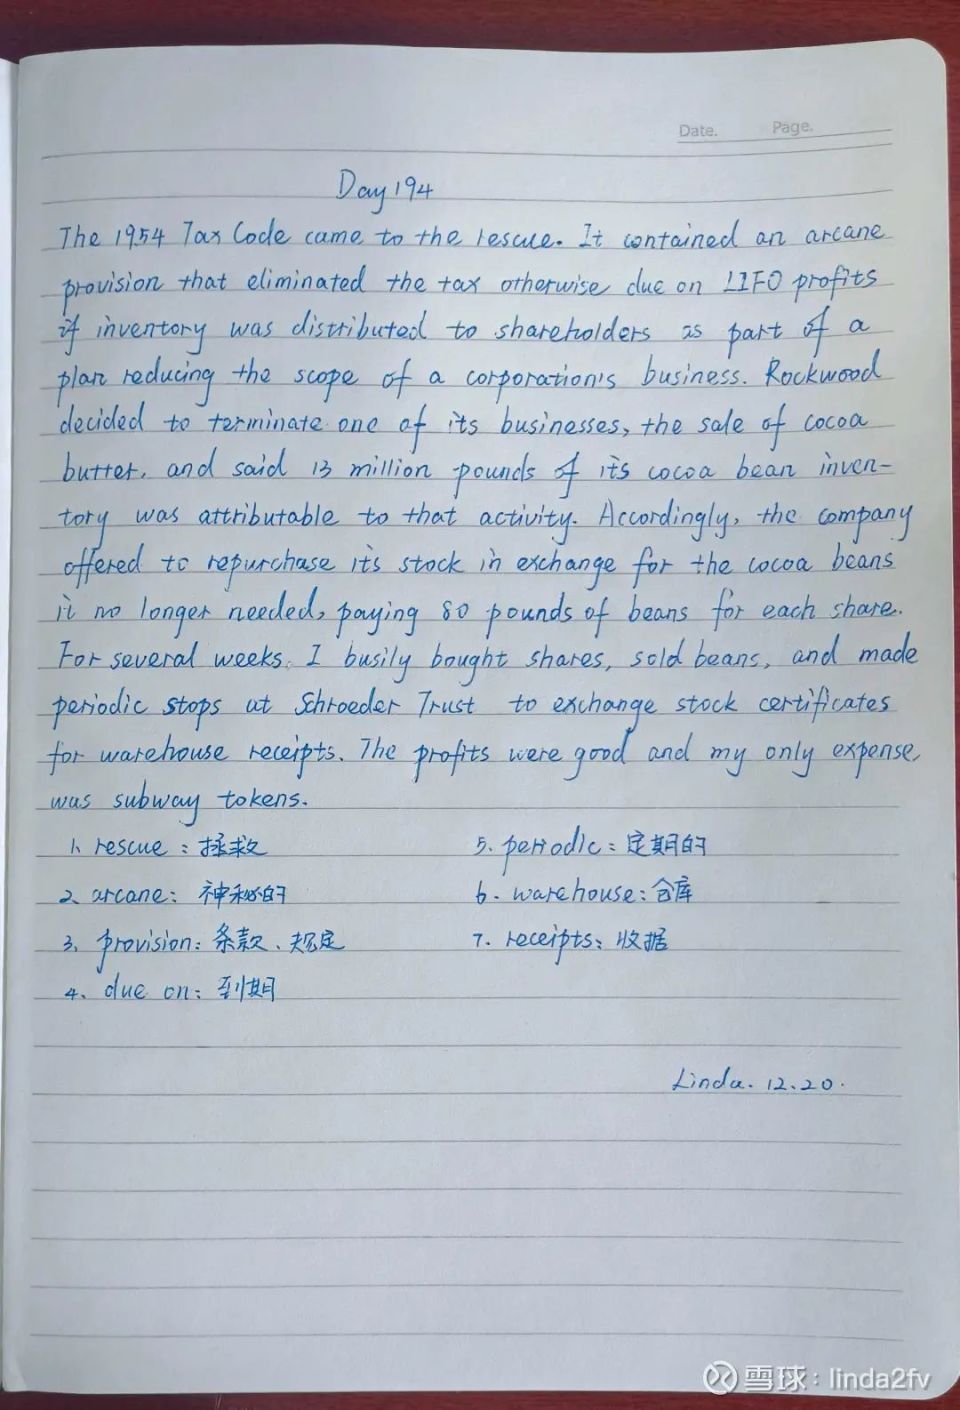 Date. Page.
Day 194
The 1954 Tax Code came to the rescue. It contained an arcane
provision that eliminated the tax otherwise due on LIFO profits
if inventory was distributed to shareholders as part of a
plan reducing the scope of a corporation's business. Rockwood
decided to terminate one of its businesses, the sale of cocoa
butter, and said 13 million pounds of its cocoa bean inven-
tory was attributable to that activity. Accordingly, the company
offered to repurchase its stock in exchange for the cocoa beans
it no longer needed, paying 80 pounds of beans for each share.
For several weeks, I busily bought shares, sold beans, and made
periodic stops at Schroeder Trust to exchange stock certificates
for warehouse receipts. The profits were good and my only expense,
was subway tokens.
1、rescue：拯救
2、arcane：神秘的
3、provision：条款、规定
4、due on：到期
5、periodic：定期的
6、warehouse：仓库
7、receipts：收据
Linda. 12.20.
雪球：linda2fv